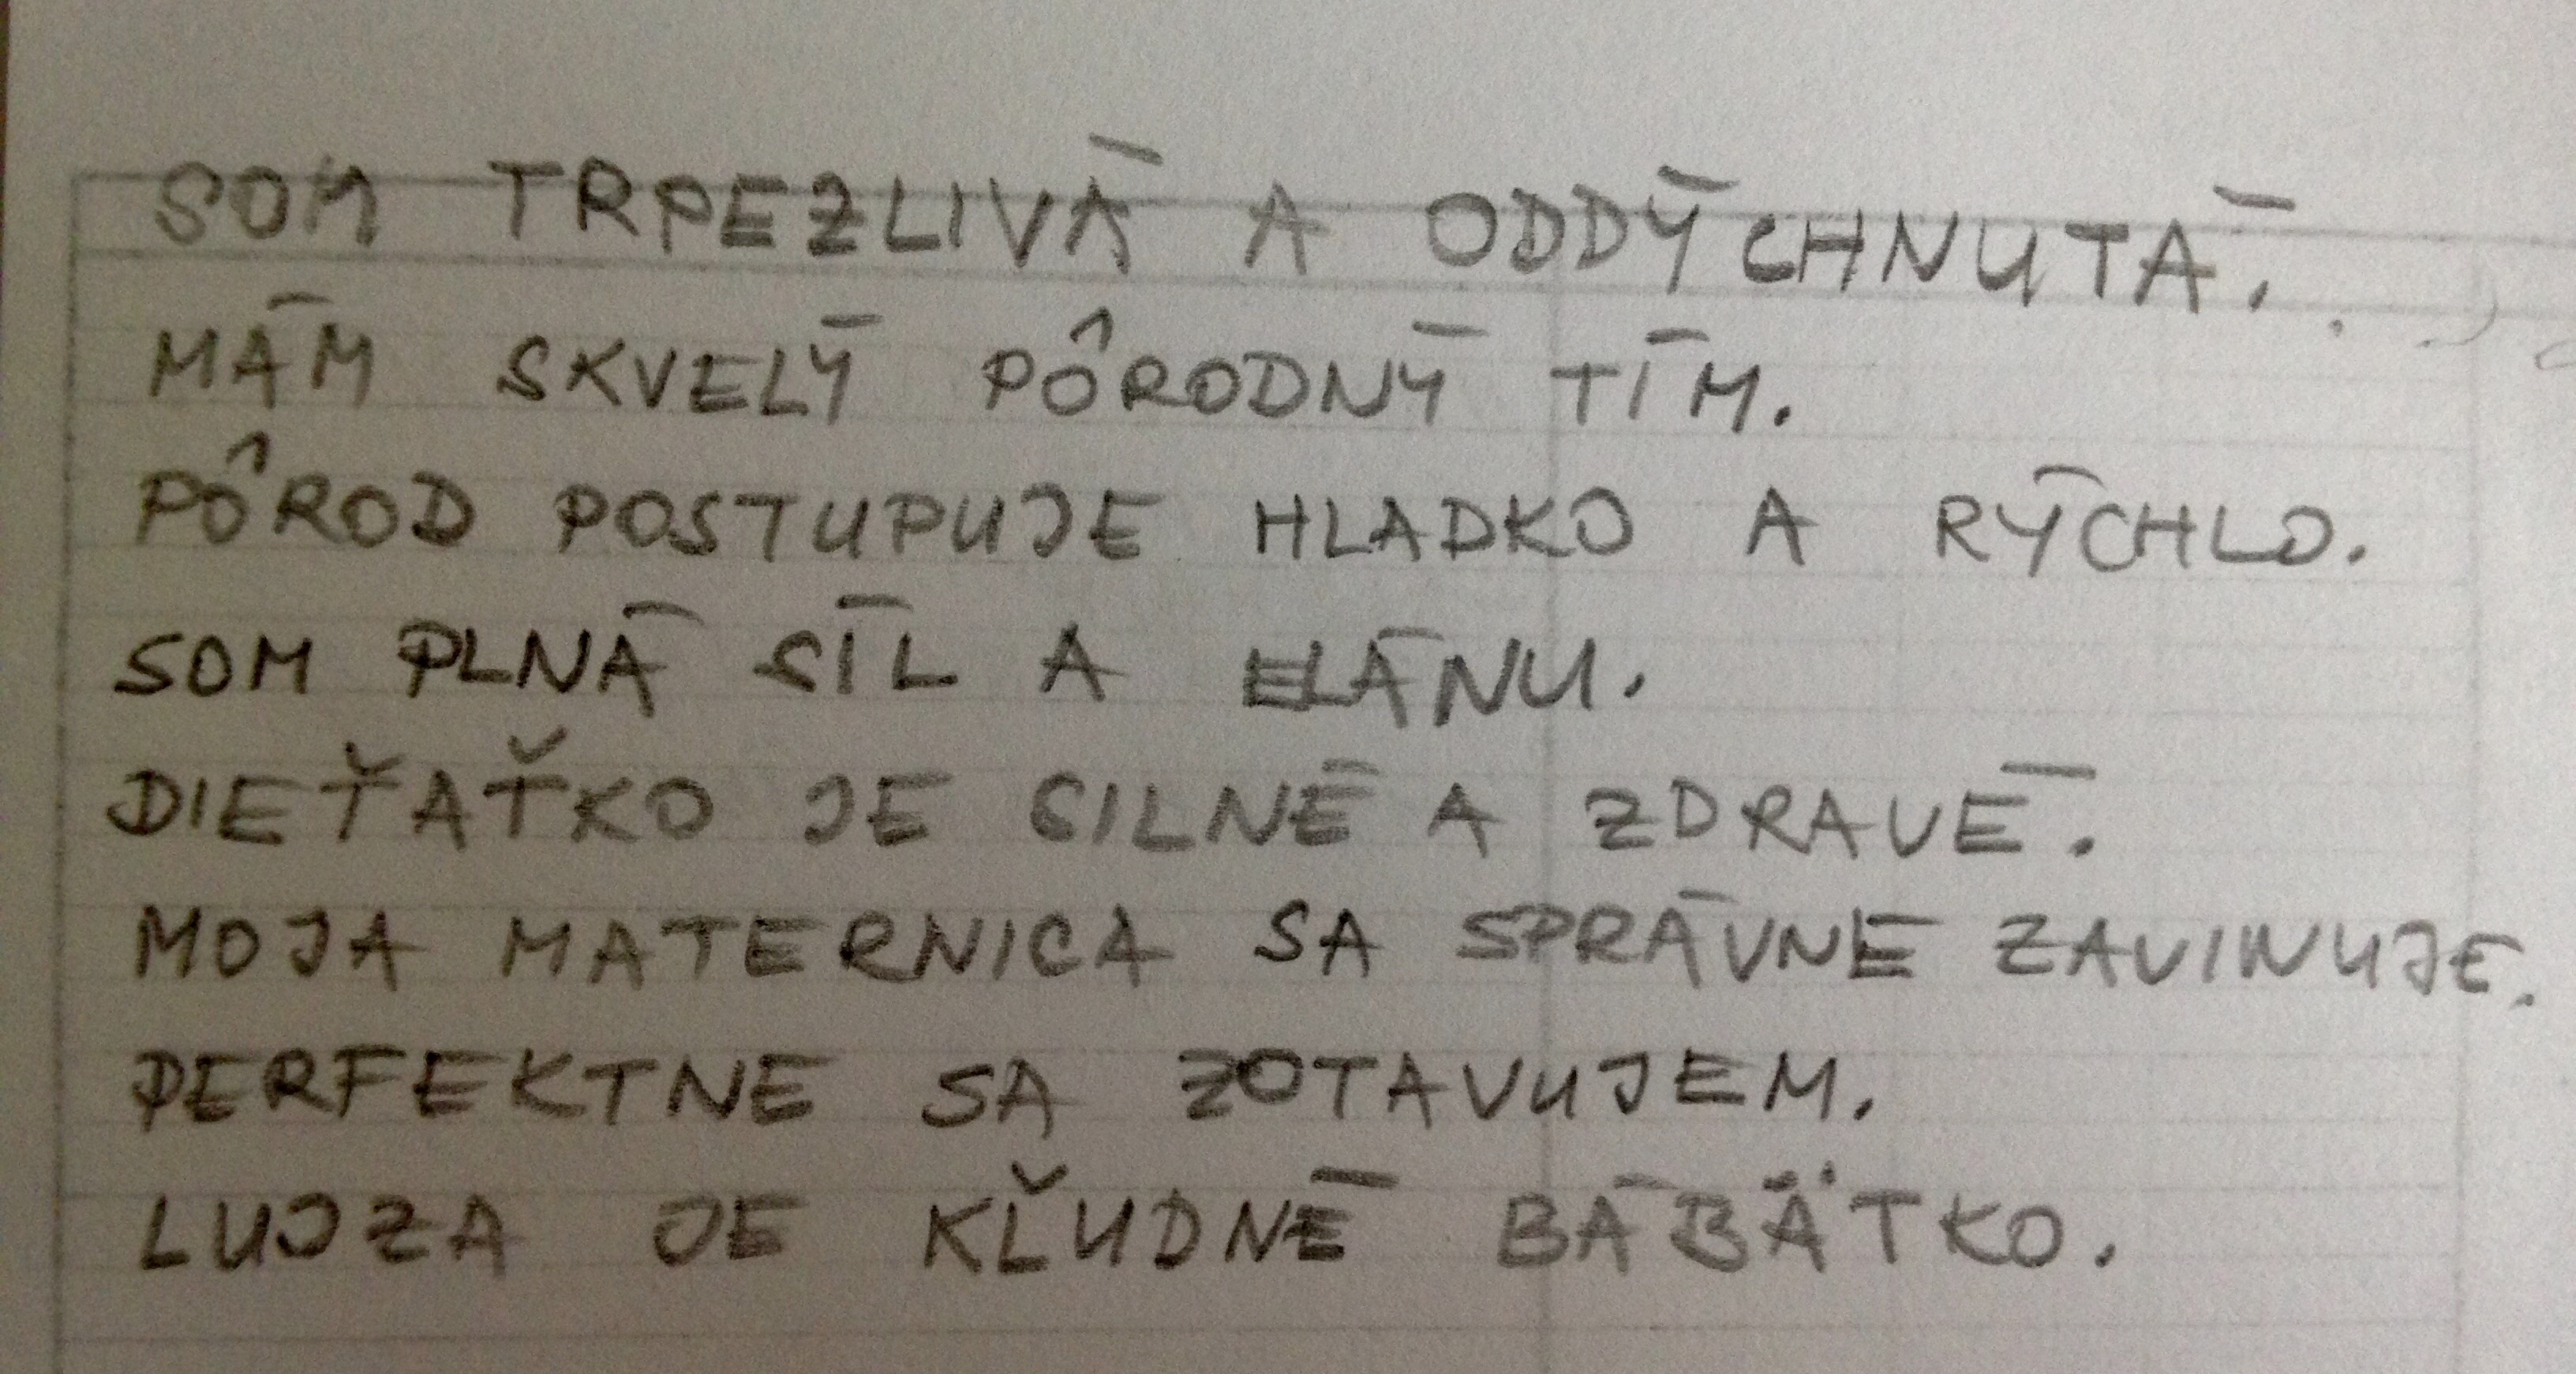 SOM TRPEZLIVÁ A ODDÝCHNUTÁ.
MÁM SKVELÝ PÔRODNÝ TÍM.
PÔROD POSTUPUJE HLADKO A RÝCHLO.
SOM PLNÁ SÍL A ELÁNU.
DIEŤAŤKO JE SILNÉ A ZDRAVÉ.
MOJA MATERNICA SA SPRÁVNE ZAVINUJE.
PERFEKTNE SA ZOTAVUJEM.
LUJZA JE KĽUDNÉ BÁBÄTKO.